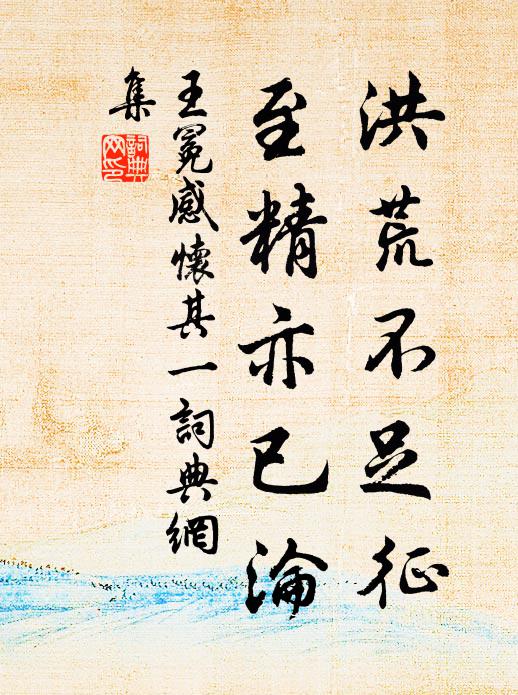 洪荒不足征
至精亦已淪
王冕感懷其一詞典網
集
詞典
网印